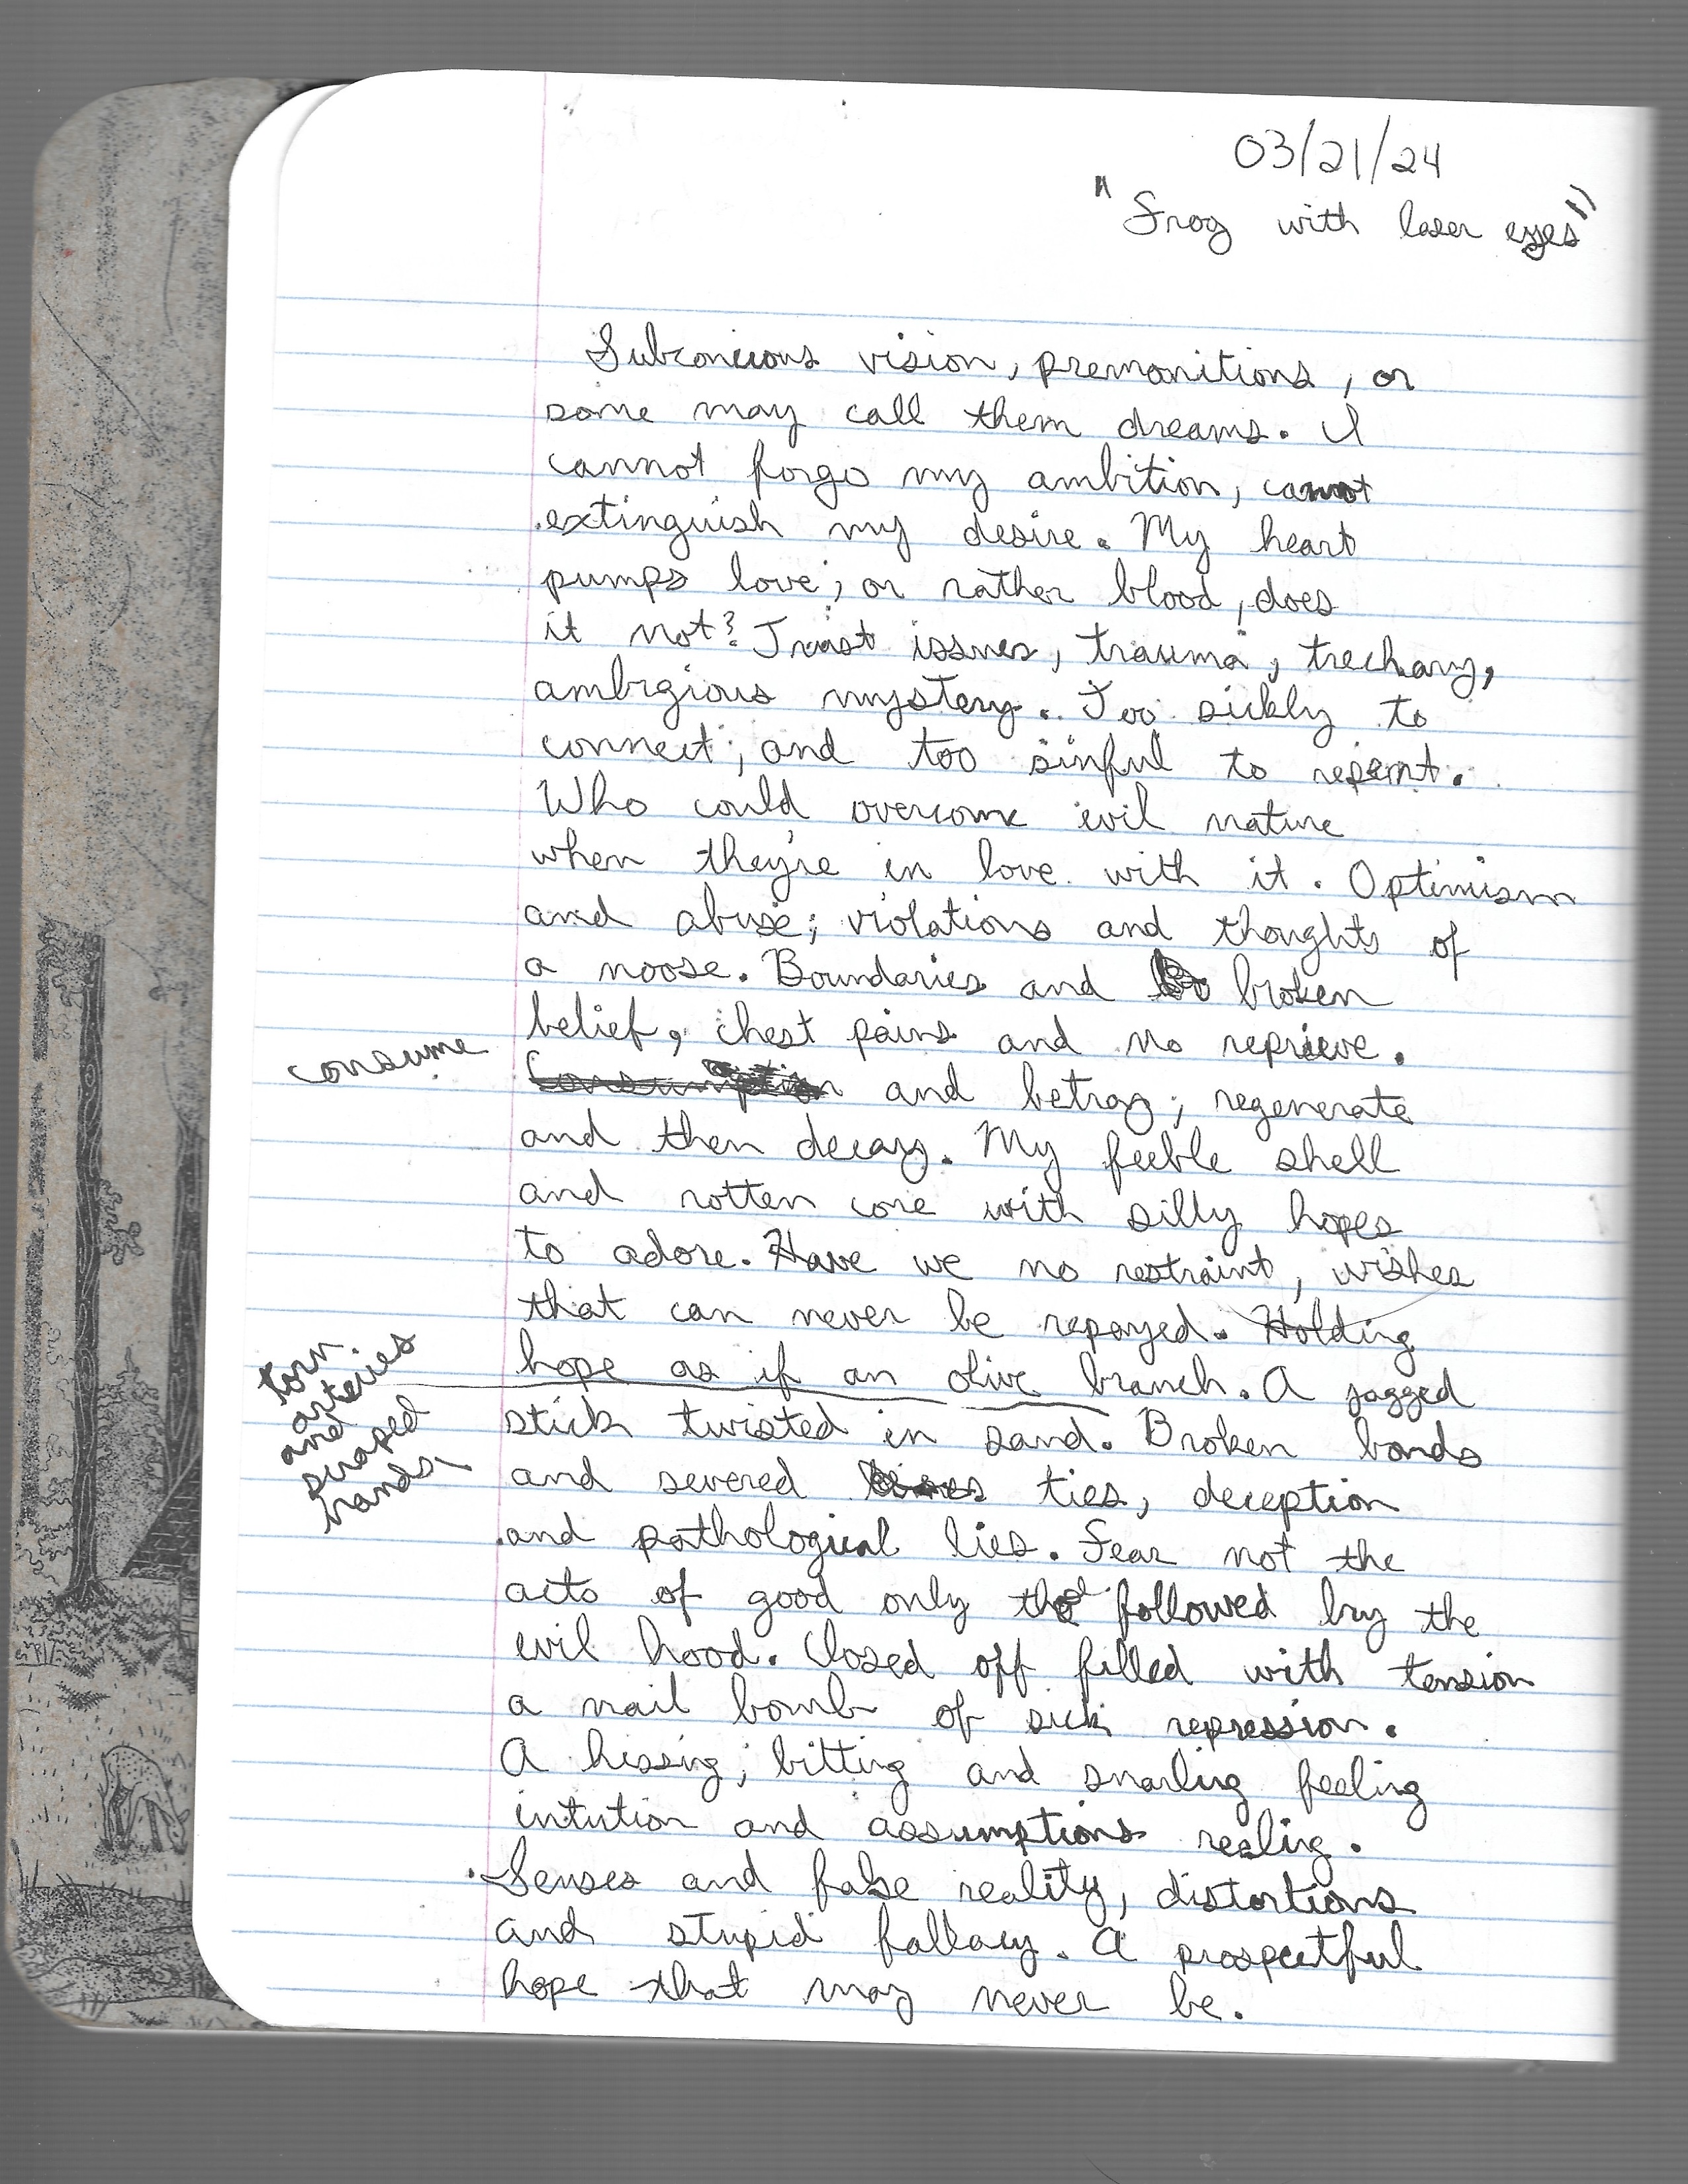 03/21/24
"Frog with laser eyes"
Subconcious vision, premonitions, or
some may call them dreams. I
cannot forgo my ambition, cannot
extinguish my desire. My heart
pumps love; or rather blood, does
it not? Trust issues, trauma, trechary,
ambigious mystery. Too sickly to
connect; and too sinful to repent.
Who could overcome evil nature
when they're in love with it. Optimism
and abuse; violations and thoughts of
a noose. Boundaries and broken
belief, chest pains and no reprieve.
consume
Consumption and betray; regenerate
and then decay. My feeble shell
and rotten core with silly hopes
to adore. Have we no restraint, wishes
that can never be repayed. Holding
hope as if an olive branch. A jagged
torn
arteries
and
scraped
hands
stick twisted in sand. Broken bonds
and severed ties, deception
and pathological lies. Fear not the
acts of good only followed by the
evil hood. Closed off filled with tension
a nail bomb of sick repression.
A hissing; bitting and snarling feeling
intution and assumptions realing.
Senses and false reality, distortions
and stupid fallacy. A prospectful
hope that may never be.